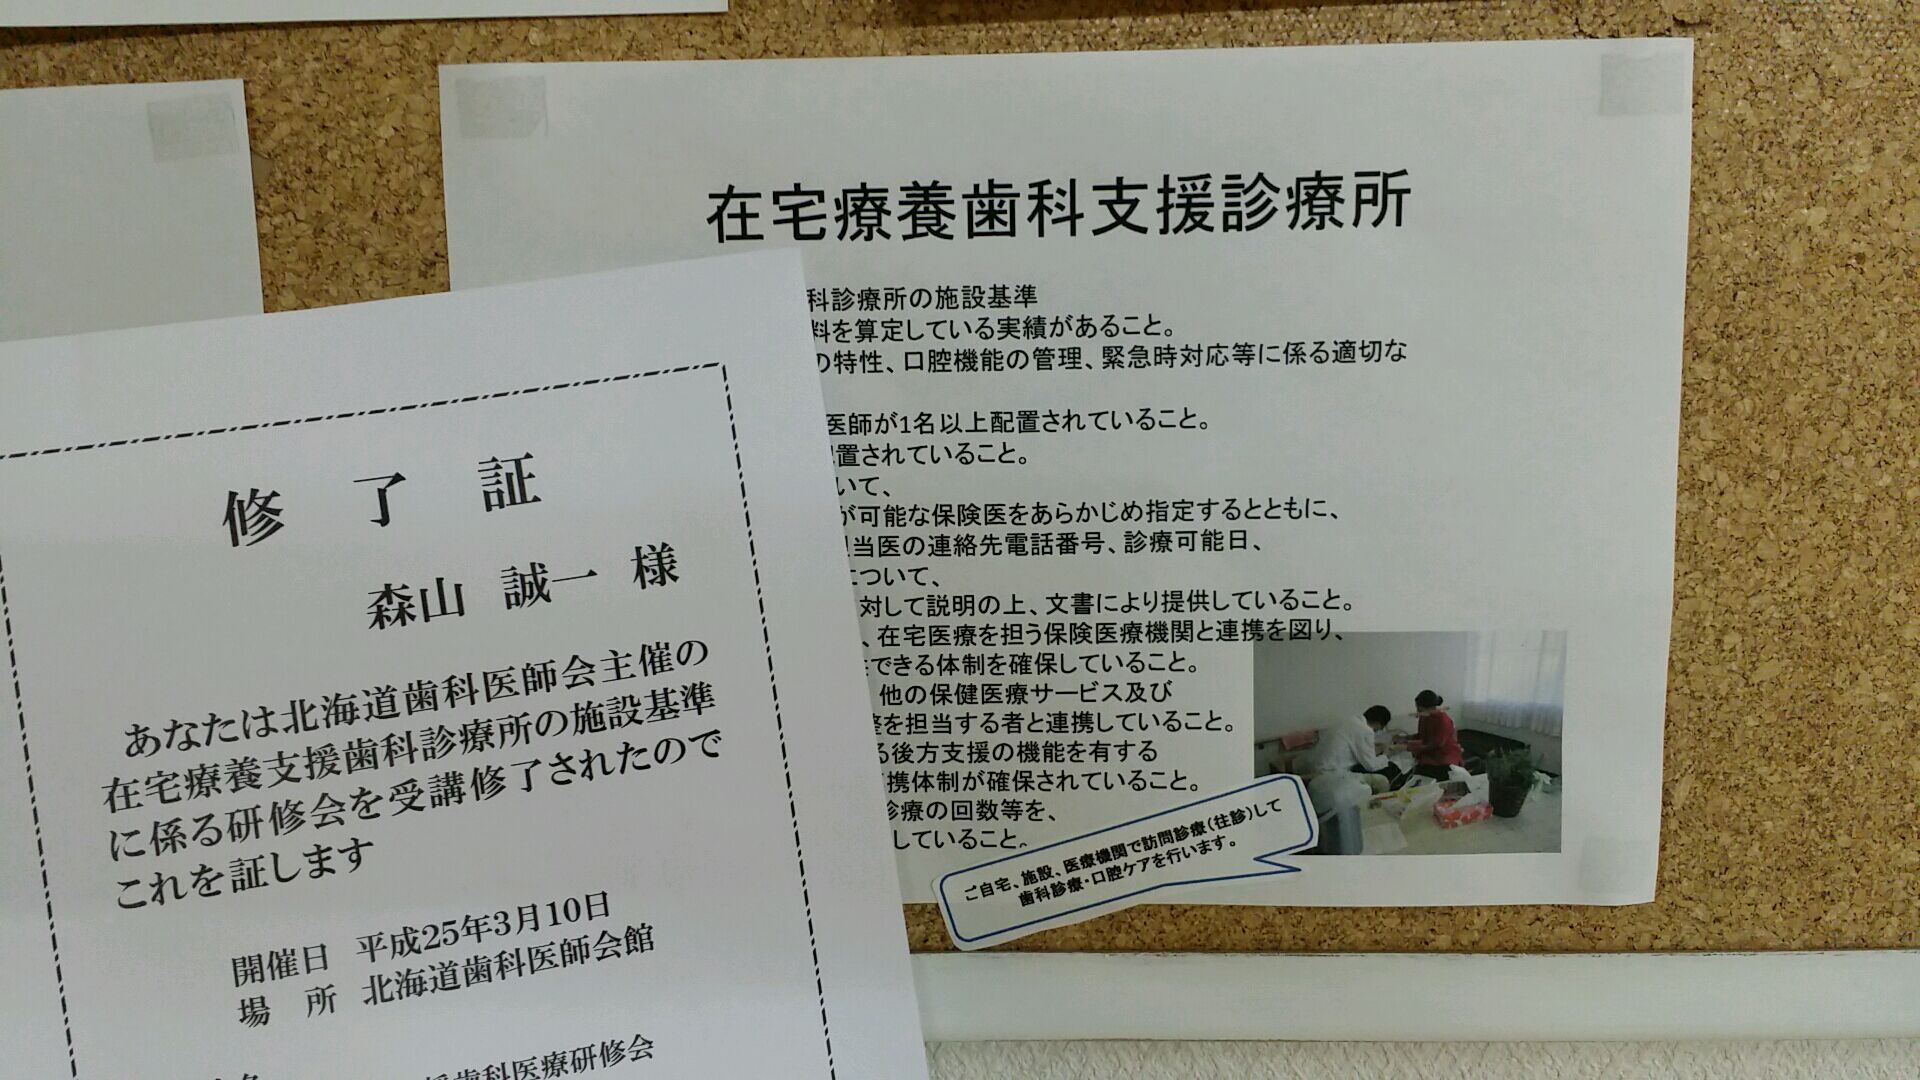 在宅療養歯科支援診療所
科診療所の施設基準
料を算定している実績があること。
の特性、口腔機能の管理、緊急時対応等に係る適切な
医師が1名以上配置されていること。
置されていること。
いて、
が可能な保険医をあらかじめ指定するとともに、
当医の連絡先電話番号、診療可能日、
について、
対して説明の上、文書により提供していること。
、在宅医療を担う保険医療機関と連携を図り、
できる体制を確保していること。
他の保健医療サービス及び
を担当する者と連携していること。
る後方支援の機能を有する
携体制が確保されていること。
診療の回数等を、
していること。
ご自宅、施設、医療機関で訪問診療(往診)して
歯科診療・口腔ケアを行います。
修了証
森山 誠一 様
あなたは北海道歯科医師会主催の
在宅療養支援歯科診療所の施設基準
に係る研修会を受講修了されたので
これを証します
開催日 平成25年3月10日
場所 北海道歯科医師会館
歯科医療研修会